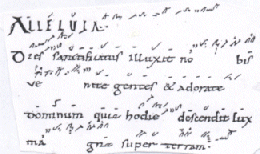 ALLELUIA
Dies sanctificatus illuxit no bis
ve nite gentes & adorate
dominum quia hodie descendit lux
ma gna super terram